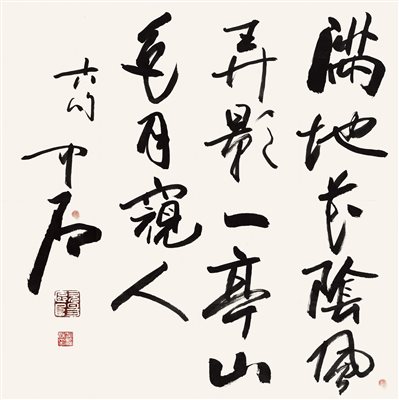 滿地花陰風
弄影一亭山
色月窺人
中石